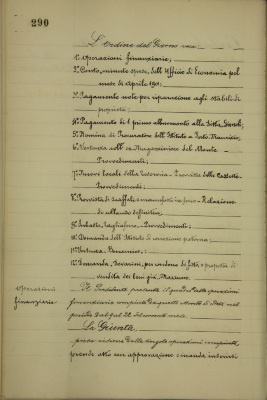 290
L'Ordine del Giorno reca:
1° Operazioni finanziarie;
2° Conto, minute spese, dell'Ufficio di Economia pel
mese di Aprile 190
3° Pagamento note per riparazione agli stabili di
proprietà;
4° Pagamento di 1 primo abbonamento alla Ditta
5° Nomina di Procuratore dell'Istituto a Porto Maurizio;
6° Vertenza coll' ex Magazziniere del Monte -
Provvedimenti;
7° Nuovi locali della Tesoreria - Provvista delle Cassette
Provvedimenti;
8° Provvista di scaffali e manufatti in ferro - Relazione
di collaudo definitivo;
9° Provvedimenti;
10° Domanda dell'Istituto di
11° Vertenza
12° Domanda per di fitto, e proposta di
vendita dei beni già
Operazioni
finanziarie
Il Presidente presenta il quadro delle operazioni
finanziarie compiute da questo Monte di Pietà nel
periodo dal al 22 del corrente mese.
La Giunta,
presa visione delle singole operazioni compiute,
prende atto con approvazione e manda inserirsi